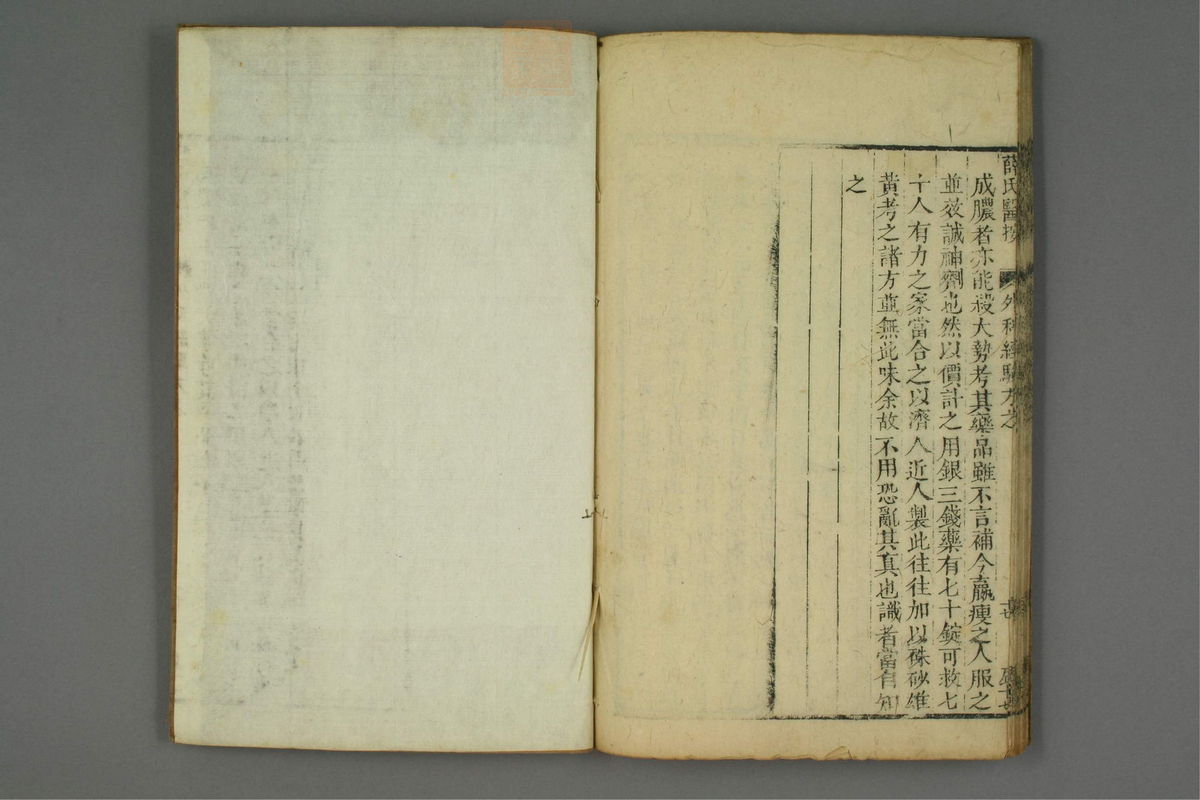 薛氏醫按 外科經驗方之
成膿者亦能殺大勢考其藥品雖不言補今羸瘦之人服之
並效誠神劑也然以價計之用銀三錢藥有七十錠可救七
十人有力之家當合之以濟人近人製此往往加以硃砂雄
黃考之諸方並無此味余故不用恐亂其真也識者當自知
之